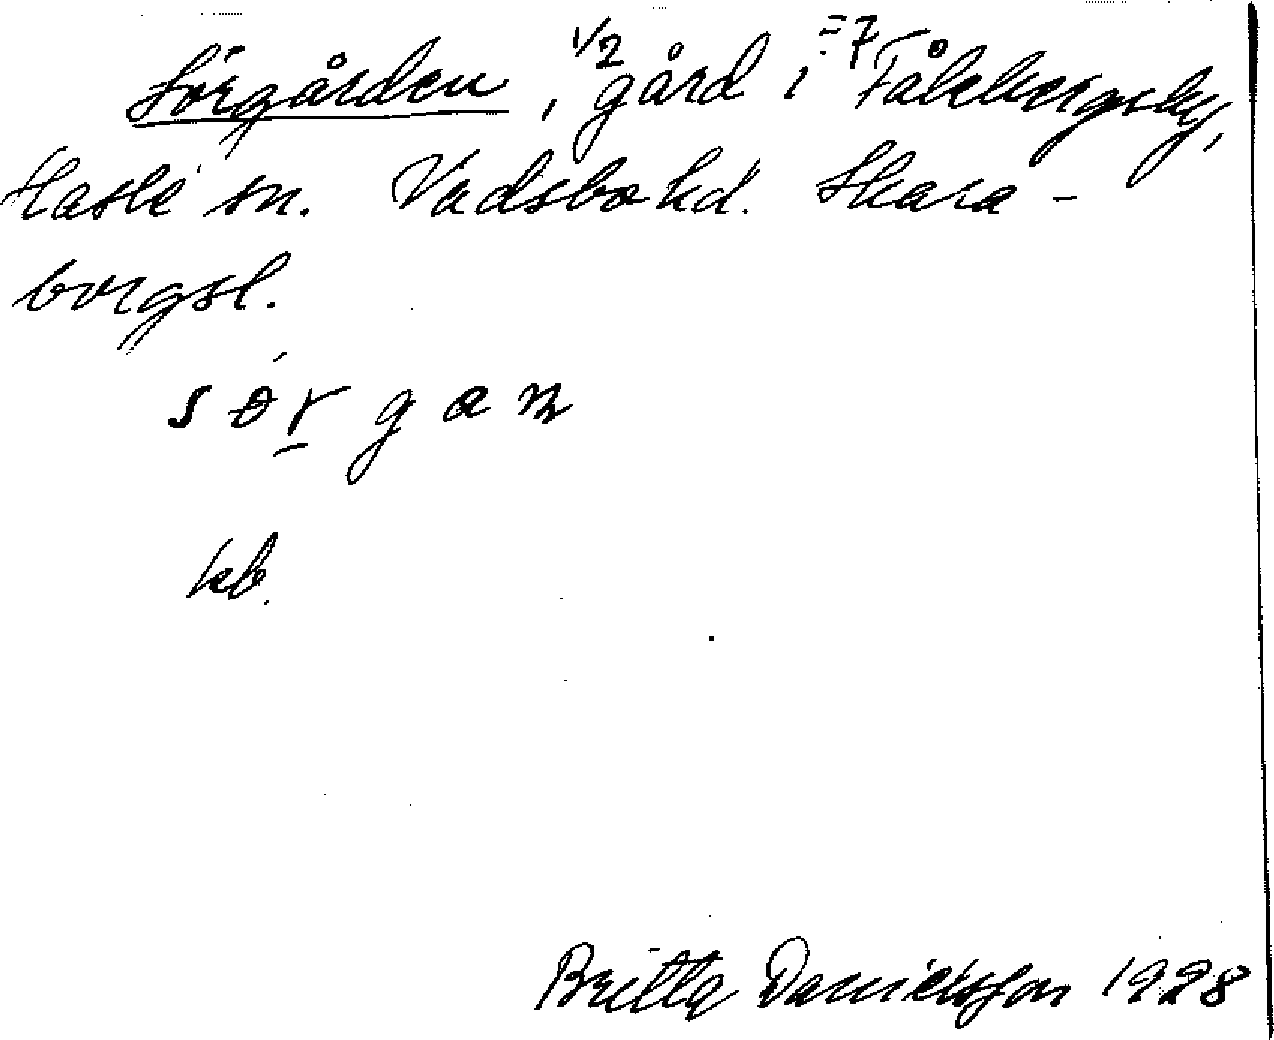 Sörgården, 1/2 gård i =7 Fålebergsby,
Hassle sn. Vadsbo hd. Skara-
borgsl.
sɵ́r̠gan
kb.
Britta Danielsson 1928